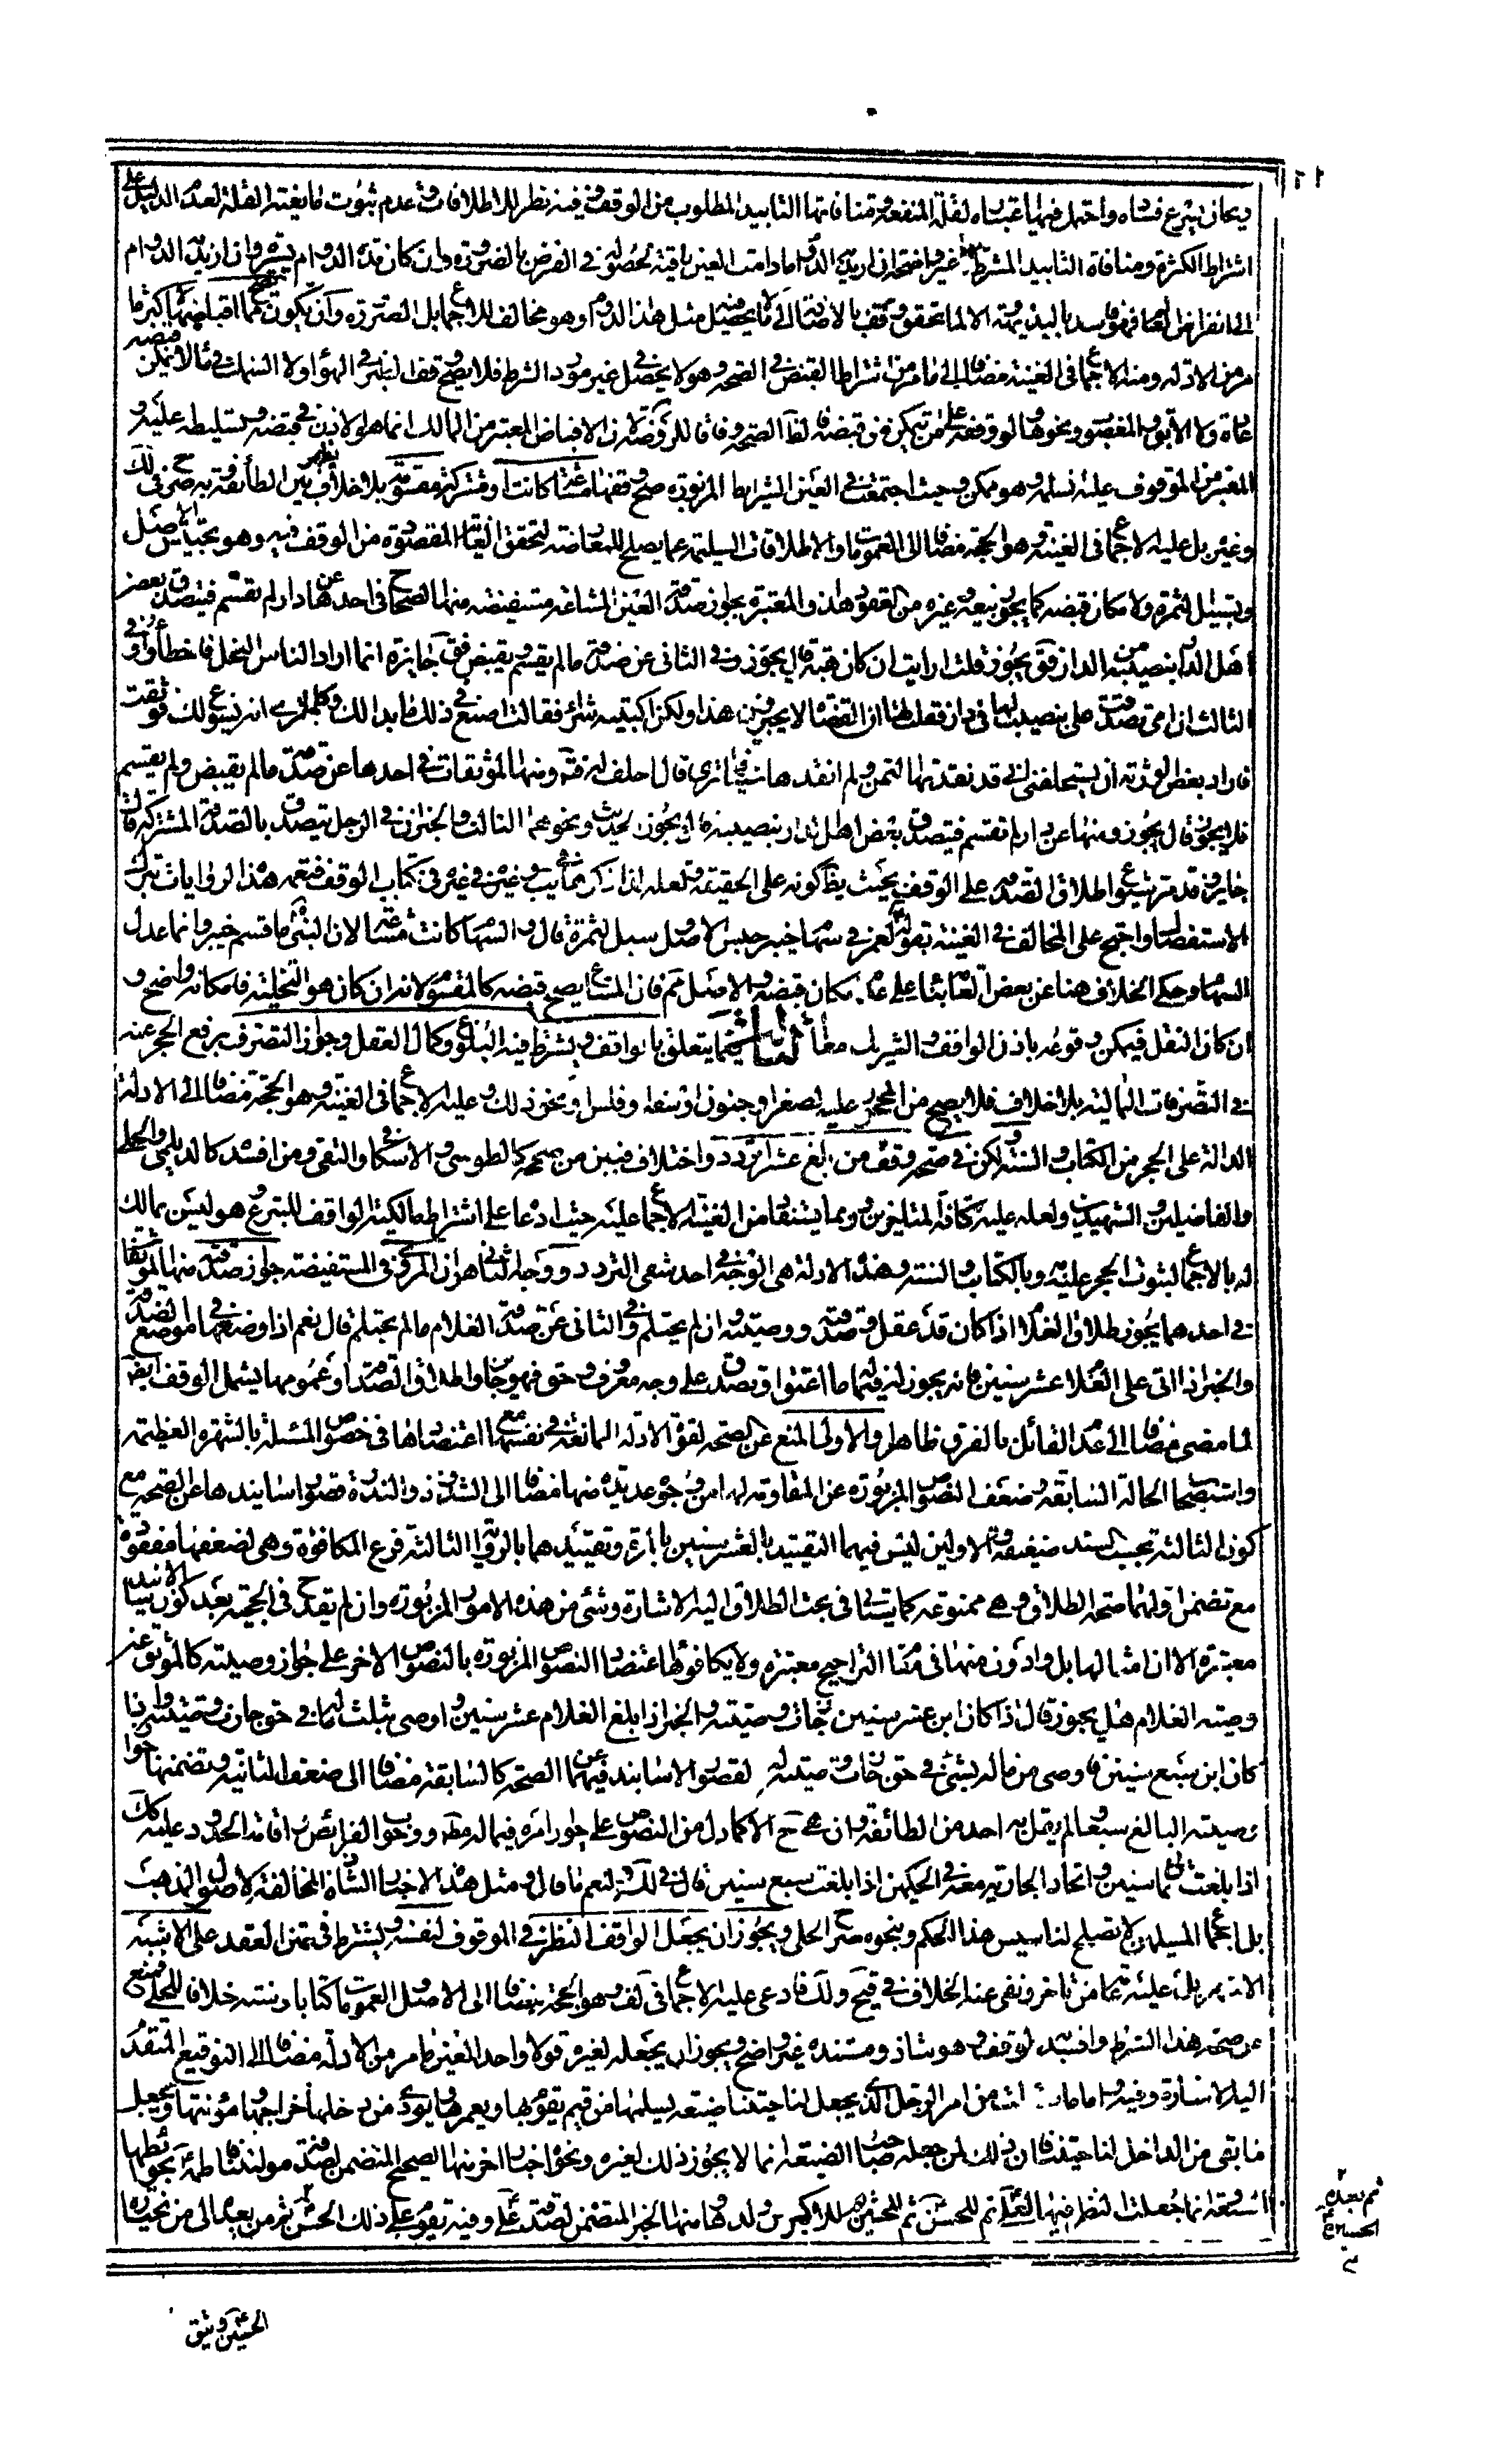 ريحان لسرع فساده واحتمل فيها اعتباره لقلة المنفعة ومنافاتها التابيد المطلوب من الوقف وفيه نظر للاطلاقات وعدم ثبوت مانعية القلة لعدم الدليل على
اشتراط الكثرة ومنافاة التابيد المشترط غير واضحة ان اريد به الدوام ما دامت العين باقية لحصوله في الفرض بالضرورة وان كان مدة الدوام يسيرة وان اريد به الدوام
الى انقراض العالم فهو فاسد بالبديهة والا لما تحقق وقف بالاصالة
مر من الادلة ومنه الاجماع في الغنية مضافا الى ما مر من اشتراط القبض في الصحة وهو لا يحصل في غير مورد الشرط فلا يصح وقف الطير في الهواء ولا السمك في ماء لا يمكن قبضه
عادة ولا الآبق والمغصوب ونحوها ولو وقفه على من يتمكن من قبضه فالظاهر الصحة وفاقا للروضة لان الاقباض المعتبر من المالك انما هو الاذن في قبضه وتسليطه عليه و
المعتبر من الموقوف عليه تسلمه وهو ممكن وحيث اجتمعت في العين الشرايط المزبورة صح وقفها مشاعة كانت او مشتركة مقسومة بلا خلاف يظهر بين الطائفة وبه صرح في لك
وغيره بل عليه الاجماع في الغنية وهو الحجة مضافا الى العمومات والاطلاقات السليمة عما يصلح للمعارضة لتحقق الغاية المقصودة من الوقف فيه وهو تحبيس الاصل
وتسبيل الثمرة ولامكان قبضه كما يجوز بيعه وغيره من العقود هذا والمعتبرة بجواز صدقة العين المشاعة مستفيضة منها الصحاح في احدها عن دار لم تقسم فيتصدق بعض
اهل الدار بنصيبه من الدار فق يجوز قلت ارايت ان كان هبة قال يجوز وفي الثاني عن صدقة ما لم يقسم ولم يقبض فق جايزة انما اراد الناس النحل فاخطأوا وفي
الثالث ان امي تصدقت علي بنصيب لها في دار فقلت لها ان القضاة لا يجيزون هذا ولكن اكتبيه شرى فقالت اصنع في ذلك ما بدا لك وكلما ترى انه يسوغ لك فوثقت
فاراد بعض الورثة ان يستحلفني اني قد نقدتها الثمن ولم انقدها شيئا فما ترى قال احلف له فته ومنها الموثقات في احدها عن صدقة ما لم يقبض ولم يقسم
فلا يجوز قال يجوز ومنها عن دار لم تقسم فيتصدق بعض اهل الدار بنصيبه قال يجوز الحديث ونحوهما الثالث والخبر ان في الرجل يتصدق بالصدقة المشتركة قال
جايز وقد مر شيوع اطلاق الصدقة على الوقف بحيث يظ كونه على الحقيقة
الاستفصال واحتج على المخالف في الغنية بقوله لعمر في سهام خيبر حبس الاصل وسبل الثمرة قال والسهام كانت مشاعة لان النبي ما قسم خيبر وانما عدل
السهام وحكي الخلاف هنا عن بعض العامة بناء على عدم امكان قبضه والاصل مم فان المشاع يصح قبضه كالمقسوم لانه ان كان هو التخلية فامكانه واضح و
ان كان النقل فيمكن وقوعه باذن الواقف والشريك معا الثالث فيما يتعلق بالواقف ويشترط فيه البلوغ وكمال العقل وجواز التصرف برفع الحجر عنه
في التصرفات المالية بلا خلاف فلا يصح من المحجور عليه لصغر او جنون او سفه او فلس او نحو ذلك وعليه الاجماع في الغنية وهو الحجة مضافا الى الادلة
الدالة على الحجر من الكتاب والسنة ولكن في صحة وقف من بلغ عشرا تردد واختلاف فبين من صححه كالطوسي والاسكافي والتقي ومن افسده كالديلمي والحلي
والفاضلين والشهيدين ولعله عليه كافة المتاخرين وربما يستفاد من الغنية الاجماع عليه حيث ادعاه على اشتراط مالكية الواقف للتبرع وهو ليس بمالك
له بالاجماع لثبوت الحجر عليه وبالكتاب والسنة وهذه الادلة هي الوجه في احد شقي التردد ووجه ثانيهما هو ان المروي في المستفيضة جواز صدقته منها الموثقان
في احدهما يجوز طلاق الغلام اذا كان قد عقل وصدقته ووصيته وان لم يحتلم وفي الثاني عن صدقة الغلام ما لم يحتلم قال نعم اذا وضعها في موضع الصدقة
والخبر اذا اتى على الغلام عشر سنين فانه يجوز له في ماله ما اعتق او تصدق على وجه معروف وحق فهو جايز واطلاق الصدقة او عمومها يشمل الوقف ايضا
لما مضى مضافا الى عدم القائل بالفرق ظاهرا والاولى المنع عن الصحة لقوة الادلة المانعة في نفسها مع اعتضادها في خصوص المسئلة بالشهرة العظيمة
واستصحاب الحالة السابقة وضعف النصوص المزبورة عن المقاومة لها من وجوه عديدة منها مضافا الى الشذوذ والندرة قصور اسانيدها عن الصحة مع
كون الثالثة بحسب السند ضعيفة والاولين ليس فيهما التقييد بالعشر سنين بالمرة وتقييدهما بالرواية الثالثة فرع المكافؤة وهي لضعفها مفقودة
مع تضمن اولهما صحة الطلاق وهي ممنوعة كما ياتي في بحث الطلاق اليه الاشارة وشئ من هذه الامور المزبورة وان لم يقدح في الحجية بعد كون الاسانيد
معتبرة الا ان امثالها بل وادون منها في مقام التراجيح معتبرة ولا يكافؤها اعتضاد النصوص المزبورة بالنصوص الاخر على جواز وصيته كالموثق عن
وصية الغلام هل يجوز قال اذا كان ابن عشر سنين جازت وصيته والخبر اذا بلغ الغلام عشر سنين واوصى بثلث ماله في حق جازت وصيته واذا
كان ابن سبع سنين فاوصى من ماله بشئ في حق جازت وصيته لقصور الاسانيد فيهما عن الصحة كالسابقة مضافا الى ضعف الثانية وتضمنها جواز
وصية البالغ سبعا ولم يقل به احد من الطائفة
اذا بلغت ثماني سنين واتحاد الجارية معه في الحكم اذا بلغت سبع سنين قال في لك ولنعم ما قال ومثل هذه الاخبار الشاذة المخالفة لاصول المذهب
بل اجماع المسلمين لا تصلح لتاسيس هذا الحكم وبنحوه صرح الحلي ويجوز ان يجعل الواقف النظر في الموقوف لنفسه ويشترط في متن العقد على الاشبه
الاشهر بل عليه عامة من تاخر ونفى عنه الخلاف في قيح ولك وادعى عليه الاجماع في لف وهو الحجة مضافا الى الاصل والعمومات كتابا وسنة خلافا للحلي فمنع
عن صحة هذا الشرط وافسد الوقف به وهو شاذ ومستنده غير واضح ويجوز ان يجعله لغيره قولا واحدا لغير ما مر من الادلة مضافا الى التوقيع المتقدم
اليه الاشارة وفيه واما ما سالت من امر الرجل الذي يجعل لناحيتنا ضيعة ويسلمها من قيم يقوم بها ويعمرها ويؤدي من دخلها خراجها ومؤنتها ويجعل
ما بقي من الداخل لناحيتنا فان ذلك لمن جعله صاحب الضيعة انما لا يجوز ذلك لغيره ونحوه اخبار اخر منها الصحيح المتضمن لصدقة مولاتنا فاطمة بحوائطها
السبعة انما جعلت النظر فيها لعلي ثم للحسن ثم للحسين ثم للاكبر من ولدها ومنها الخبر المتضمن لصدقة علي وفيه يقوم على ذلك الحسن ثم من بعده الى من يختاره
ثم بعده
الحسين